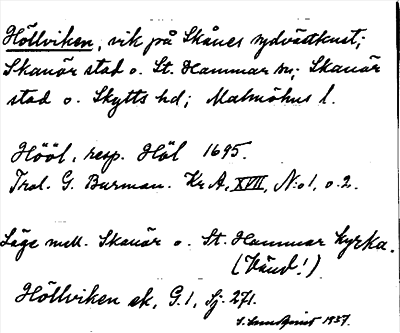 Höllviken, vik på Skånes sydvästkust;
Skanör stad o. St. Hammar sn; Skanör
stad o. Skytts hd; Malmöhus l.
Hööl, resp. Höl 1695.
Trol. G. Burman. Kr A, XVII, N:o 1, o. 2.
Läge mell. Skanör o. St. Hammar kyrka.
(Vänd!)
Höllviken ek, G.1, Sj. 271.
1937.